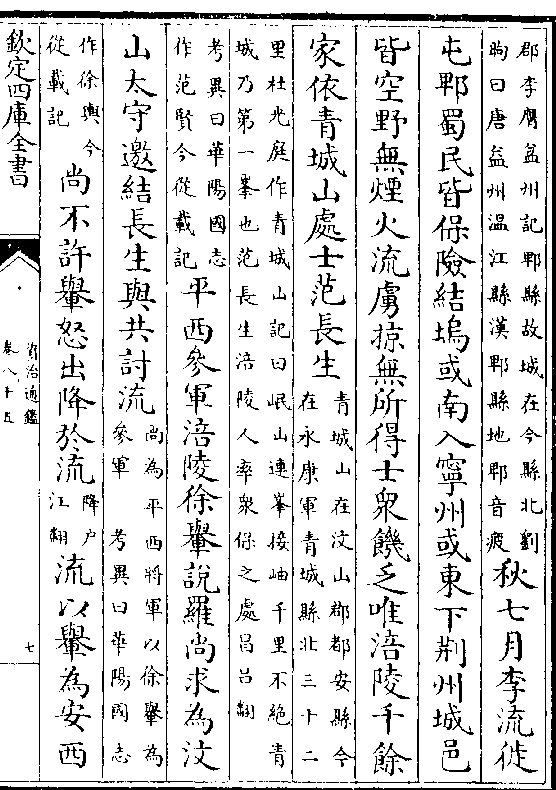 郡李膺益州記郫縣故城在今縣北劉
昫曰唐益州温江縣漢郫縣地郫音疲
秋七月李流徙
屯郫蜀民皆保險結塢或南入寧州或東下荆州城邑
皆空野無煙火流虜掠無所得士衆饑乏唯涪陵千餘
家依青城山處士范長生
青城山在汶山郡都安縣今
在永康軍青城縣北三十二
里杜光庭作青城山記曰岷山連峯接岫千里不絶青
城乃第一峯也范長生涪陵人率衆保之處昌吕翻
考異曰華陽國志
作范賢今從載記
平西參軍涪陵徐轝說羅尚求為汶
山太守邀結長生與共討流
尚為平西將軍以徐轝為
參軍 考異曰華陽國志
作徐輿今
從載記
尚不許轝怒出降於流
降户
江翻
流以轝為安西
欽定四庫全書
資治通鑑
卷八十五
七